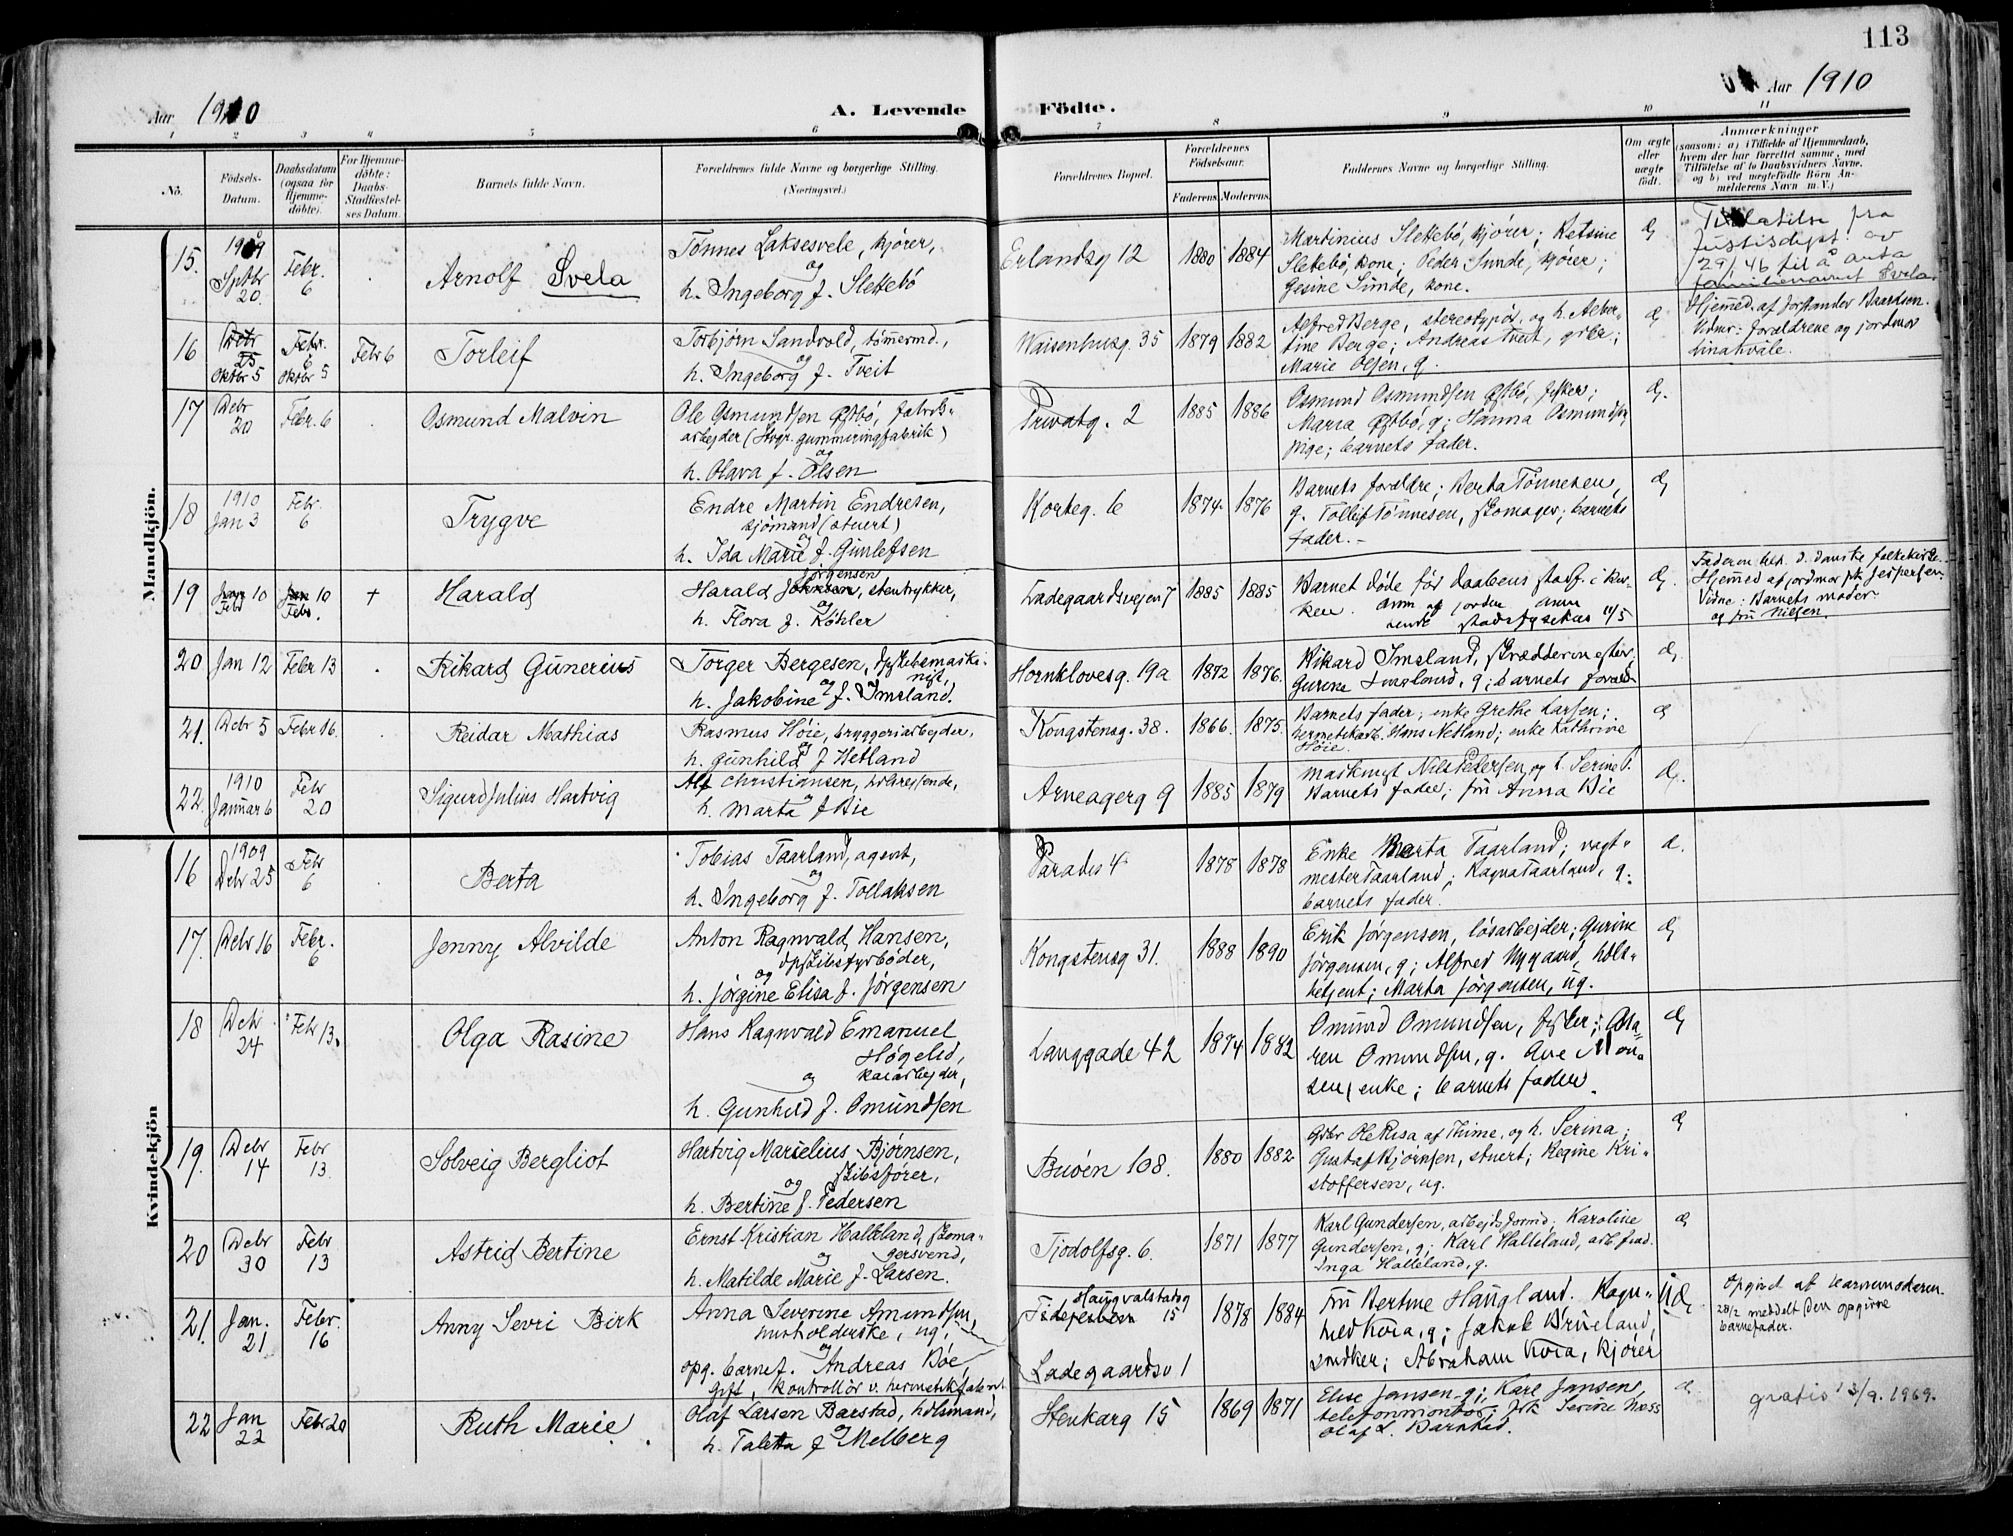 113
Aar 1910
A. Levende
Födte.
Aar 1910
1 2 3 4 5 6 7 8 9 10 11
No.
Födsels-
Datum.
Daabsdatum
(ogsaa for
Hjemme-
döbte).
For Hjemme-
döbte:
Daabs-
Stadfæstel-
ses Datum
Barnets fulde Navn.
Forældrenes fulde Navne og borgerlige Stilling.
(Næringsvei.)
Forældrenes Bopæl.
Forældrenes
Födselsaar.
Faderens.
Moderens.
Faddernes Navne og borgerlige Stilling.
Om ægte
eller
uægte
födt.
Anmærkninger
(saasom: a) i Tilfælde af Hjemmedaab,
hvem der har forrettet samme, med
Tilföielse af to Daabsvidners Navne,
og b) ved uægtefödte Börn An-
melderens Navn m. V.)
Mandkjön.
15.
1909
Septbr
20.
Febr.
6
Arnolf Svela
Tønnes Laksesvele, kjører,
og
h. Ingeborg f. Slettebö
Erlandsg 12
1880
1884
Martinius Slettebö, kjører; Retsine
Slettebö, kone; Peder Sunde, kjører;
Gesine Sunde, kone.
Æ
fra
Justisdept. av
29/46 til å anta
familienavnet Svela
16
Oktbr 5
Febr.
6
Febr 6
Torleif
Torbjørn Sandvold, tømmermd.,
og
h. Ingeborg f. Tveit
Waisenhusg. 35
1879
1882
Alfred Berge, stereotypør, og h. Alber-
tine Berge; Andreas Tveit, grbr;
Marie Olsen, g.
Æ
Hjemmed. af forstander Baardsen.
Vidner: forældrene og jordmor
17
Debr
20
Febr. 6
Osmund Malvin
Ole Osmundsen Østbö, fabrik-
arbejder (Stvgr. gummeringfabrik)
og
h. Olava f. Olsen
Privatg. 2
1885
1886
Osmund Osmundsen Østbö, fisker;
Maria Østbö, g; Hanna Osmundsen
pige; barnets fader.
Æ.
18
1910
Jan 3
Febr.
6
Trygve
Endre Martin Endresen,
sjömand (stuert)
og
h. Ida Marie f. Gunlefsen
Korteg. 6
1874
1876
Barnets forældre; Berta Tönnesen,
g. Tollef Tönnesen, skomager; barnets
fader.
Æ
19
Febr
10
Febr.
10
+
Harald
Jørgensen
Harald Johnsen, stentrykker,
og
h. Flora f. Köhler
Ladegaardsvejen 7
1885
1885
Barnet døde før daabens stadf. i kir-
ken.
Æ.
Faderen tilh. d. danske folkekirke.
Hjemmed af jordmor frk Jespersen.
Vidne: Barnets moder
og fru Nielsen.
20
Jan 12
Febr 13
Rikard Gunerius
Torger Bergesen, dpskibsmaski-
nist,
og
h. Jakobine f. Imsland.
Hornklovesg. 19a
1872
1876.
Rikard Imsland,
Gurine Imsland, g; barnets foræld.
Æ.
21.
Debr 5
Febr 16.
Reidar Mathias
Rasmus Höie, bryggeriarbejder,
og
h. Gunhild f. Hetland
Kongstensg. 38.
1866
1875.
Barnets fader; enke Grethe Larsen;
hermetikarb. Hans Netland; enke Kathrine
Höie.
Æ
22.
1910
Januar 6
Febr
20
Sigurd Julius Hartvig
Alf Christiansen, hdlsreisende,
og
h. Marta f Bie
Arneagerg 9
1885
1879
maskmst Nils Pedersen, og h. Serine P.
Barnets fader; fru Anna Bie
Æ.
Kvindekjön
16
1909
Debr 25
Febr
6
Berta
Tobias Taarland, agent,
og
h. Ingeborg f. Tollaksen
Paradis 4
1878
1878
Enke Berta Taarland; vagt-
mester Taarland; Ragna Taarland, g.
barnets fader.
Æ.
17.
Debr 16
Febr.
6
Jenny Alvilde
Anton Ragnvald Hansen,
dpskibsfyrböder,
og
h. Jörgine Elisa f. Jörgensen
Kongstensg 31.
1888
1890
Erik Jörgensen, lösarbejder; Gurine
Jörgensen, g; Alfred Nygaard, hdls-
betjent; Marta Jörgensen, ug.
Æ
18
Debr
24
Febr 13.
Olga Rasine
Hans Ragnvald Emanuel
Högelid,
kaiarbejder,
og
h. Gunhild f. Omundsen
Langgade 42
1874
1882
Omund Omundsen, fisker; Asa-
ren Omundsen, g. Ane Mon-
sen, enke; barnets fader.
Æ
19.
Debr
14
Febr
13.
Solveig Bergliot
Hartvig Marselius Björnsen,
skibsförer,
og
h. Bertine f. Pedersen
Buöen 108.
1880
1882
Grbr Ole Risa af Thime, og h. Serina;
Gustaf Bjørnsen, stuert; Regine Kri-
stoffersen, ug.
Æ
20
Debr
30
Febr
13
Astrid Bertine
Ernst Kristian Halleland, skoma-
gersvend,
og
h. Matilde Marie f. Larsen.
Tjodolfsg. 6.
1871
1877
Karl Gundersen, arbejdsformd; Karoline
Gundersen, g; Karl Halleland,
Inga Halleland, g.
Æ
21.
Jan.
21
Febr.
16
Anny Sevri Birk
Anna Severine Amundsen,
husholderske, ug,
og
opg. barnef. Andreas Böe,
gift, kontrollör v. hermetikfabrik
Haugvalstadsg
15
Ladegaardsv 1
1878
1884
Fru Bertine Haugland. Ragn-
hild Kvia, g; Jakob Brueland,
snedker; Abraham Kvia, kjører
UÆ
Opgivet af barnemoderen.
28/2 meddelt den opgivne
barnefader.
22
Jan
22
Febr 20
Ruth Marie
Olaf Larsen Barstad, hdlsmand,
og
h. Taletta f Melberg
Stenkarg 15
1869
1871
Elise Jansen, g; Karl Jansen,
telefonmontör; frk Serine Næss
Olaf L. Barstad.
Æ
gratis 13/9. 1969.